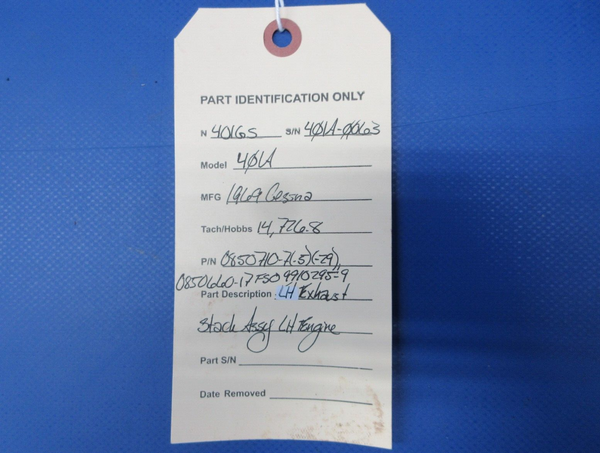 PART IDENTIFICATION ONLY
N 4016S S/N 401A-0063
Model 401A
MFG 1969 Cessna
Tach/Hobbs 14,726.8
P/N 0850710-7(-5)(-29),
0850660-17 FSO 9910295-9
Part Description LH Exhaust
Stack Assy LH Engine
Part S/N
Date Removed